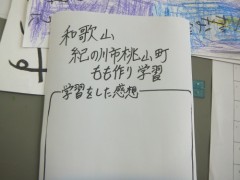 和歌山
紀の川市桃山町
もも作り学習
学習をした感想